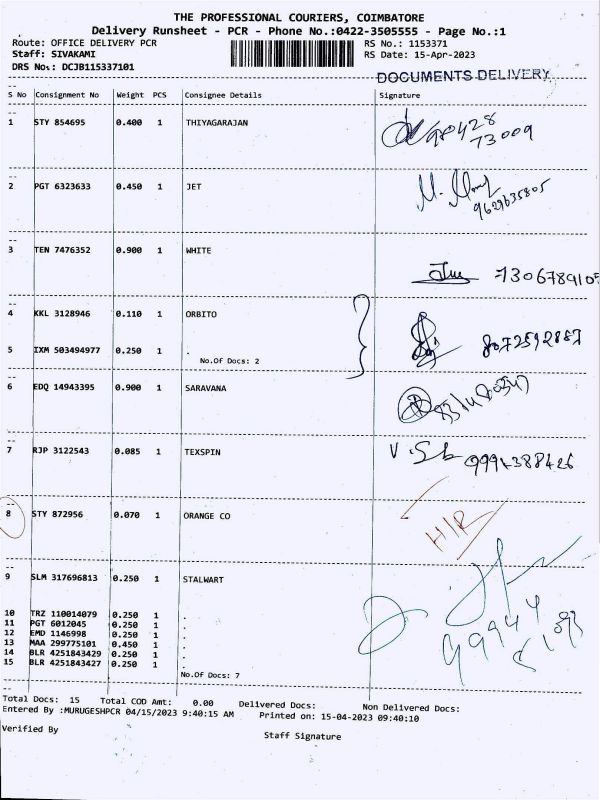 THE PROFESSIONAL COURIERS, COIMBATORE
Delivery Runsheet - PCR - Phone No.:0422-3505555 - Page No.:1
Route: OFFICE DELIVERY PCR RS No.: 1153371
Staff: SIVAKAMI RS Date: 15-Apr-2023
DRS No: DCJB115337101
DOCUMENTS DELIVERY
S No Consignment No Weight PCS Consignee Details Signature
1 STY 854695 0.400 1 THIYAGARAJAN 98428
73009
2 PGT 6323633 0.450 1 JET
9629635805
3 TEN 7476352 0.900 1 WHITE
7306789105
4 KKL 3128946 0.110 1 ORBITO
8072592887
5 IXM 503494977 0.250 1 .
No.Of Docs: 2
6 EDQ 14943395 0.900 1 SARAVANA
7 RJP 3122543 0.085 1 TEXSPIN
8 STY 872956 0.070 1 ORANGE CO
H/R
9 SLM 317696813 0.250 1 STALWART
10 TRZ 110014079 0.250 1 .
11 PGT 6012045 0.250 1 .
12 EMD 1146998 0.250 1 .
13 MAA 299775101 0.450 1 .
14 BLR 4251843429 0.250 1 .
15 BLR 4251843427 0.250 1 .
No.Of Docs: 7
Total Docs: 15 Total COD Amt: 0.00 Delivered Docs: Non Delivered Docs:
Entered By :MURUGESHPCR 04/15/2023 9:40:15 AM Printed on: 15-04-2023 09:40:10
Verified By Staff Signature